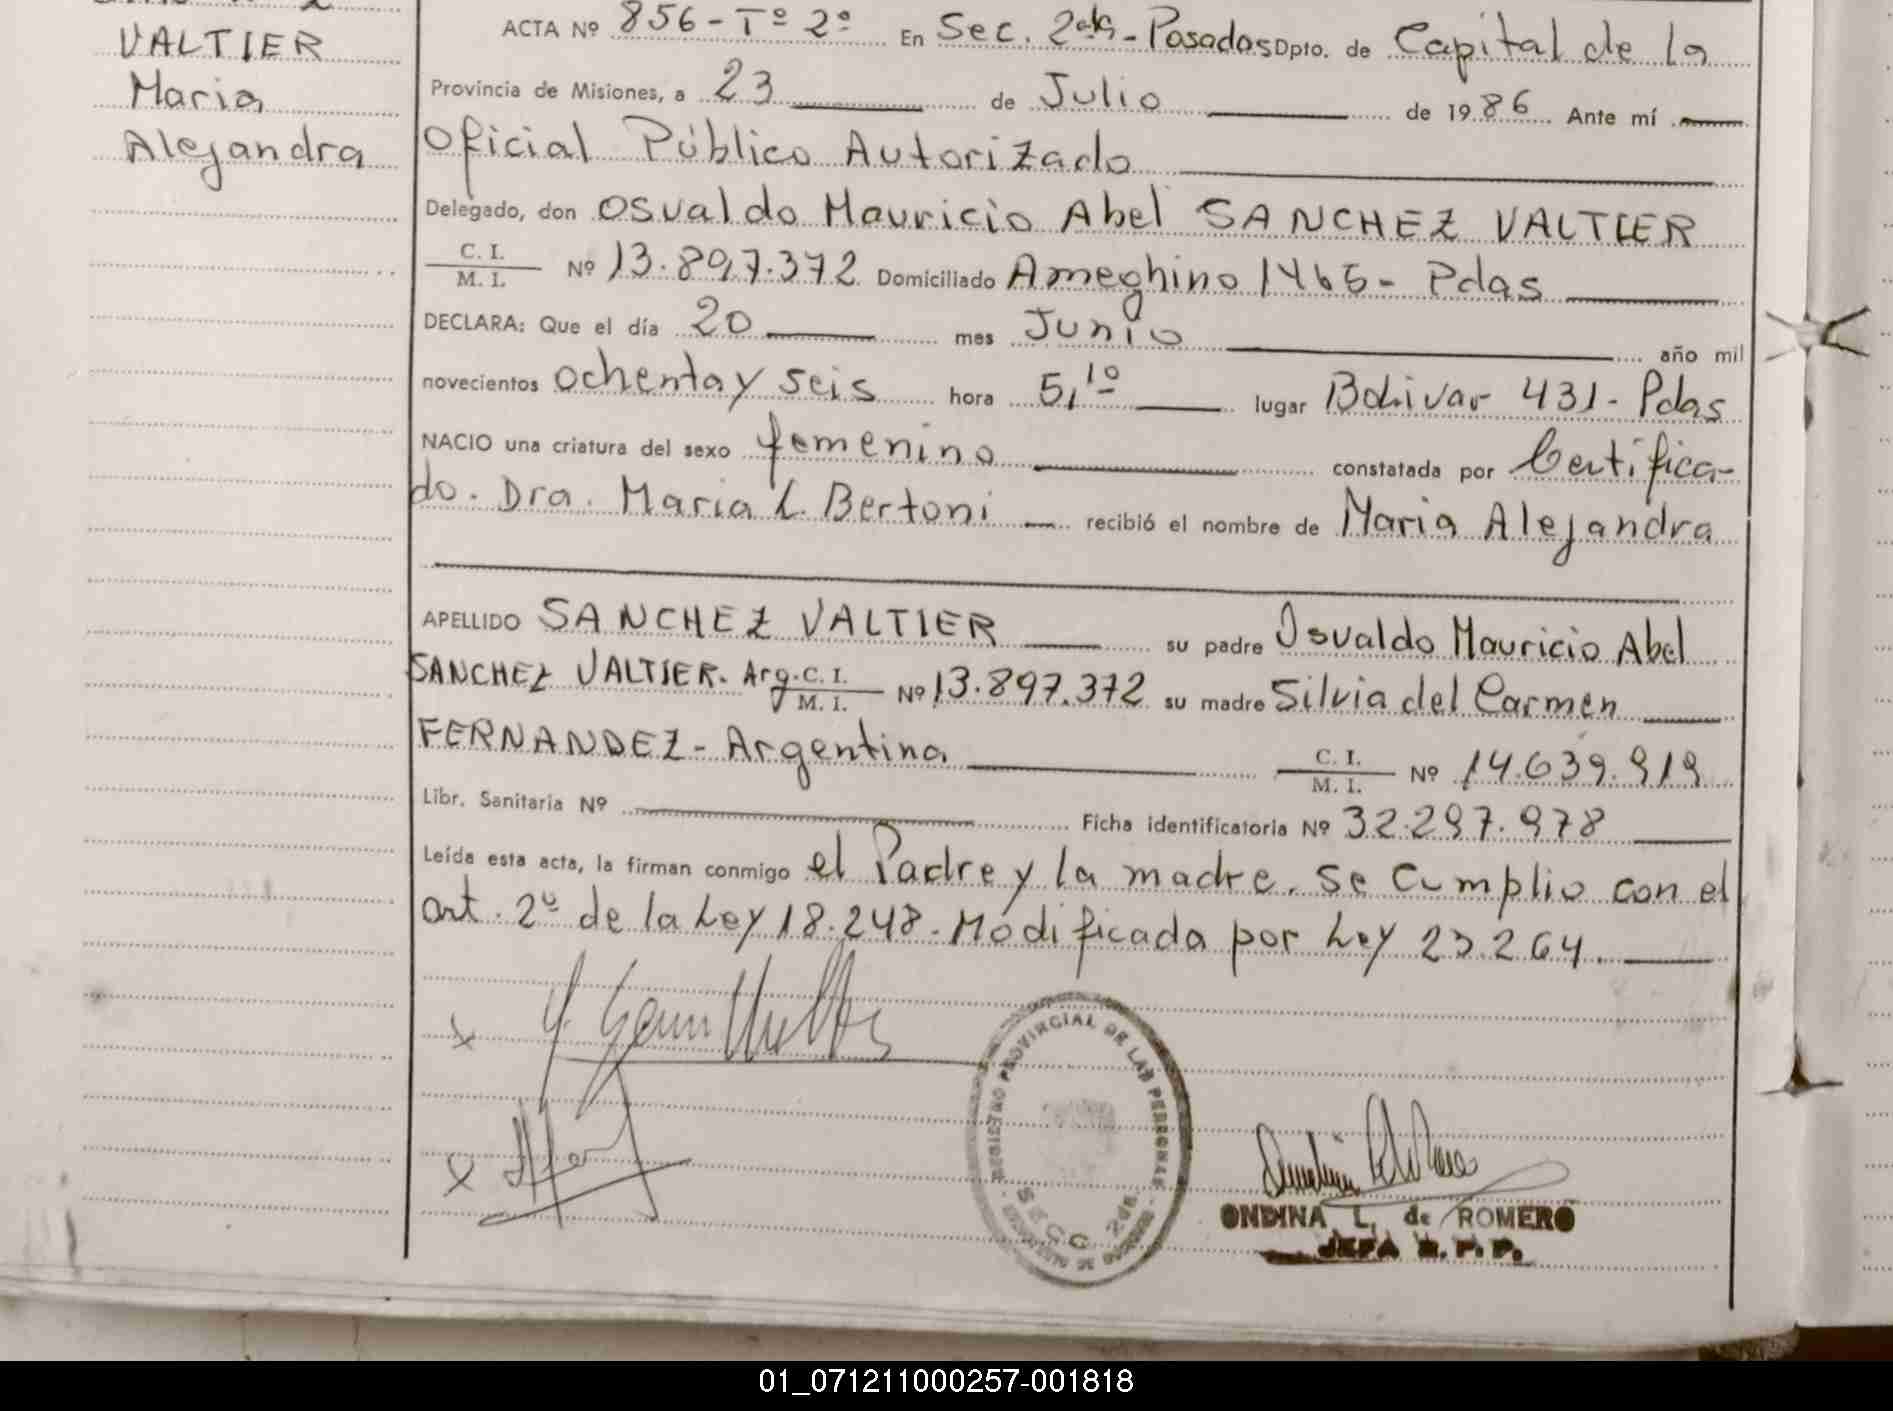 VALTIER
Maria
Alejandra
ACTA Nº 856 - Tº 2º En Sec. 2da - Posadas Dpto. de Capital de la
Provincia de Misiones, a 23 de Julio de 1986 Ante mí
Oficial Público Autorizado
Delegado, don Osvaldo Mauricio Abel SANCHEZ VALTIER
C. I. / M. I. Nº 13.897.372 Domiciliado Ameghino 1465 - Pdas
DECLARA: Que el día 20 mes Junio año mil
novecientos ochenta y seis hora 5,10 lugar Bolivar 431 - Pdas
NACIO una criatura del sexo femenino constatada por Certifica-
do. Dra. Maria L. Bertoni recibió el nombre de Maria Alejandra
APELLIDO SANCHEZ VALTIER su padre Osvaldo Mauricio Abel
SANCHEZ VALTIER. Arg. C. I. / M. I. Nº 13.897.372 su madre Silvia del Carmen
FERNANDEZ - Argentina C. I. / M. I. Nº 14.639.919
Libr. Sanitaria Nº Ficha identificatoria Nº 32.297.978
Leída esta acta, la firman conmigo el Padre y la madre. Se Cumplio con el
art. 2º de la Ley 18.248. Modificada por Ley 23.264.
REGISTRO PROVINCIAL DE LAS PERSONAS
SECC. 2da
ONDINA L. de ROMERO
JEFA R. P. P.
01_071211000257-001818